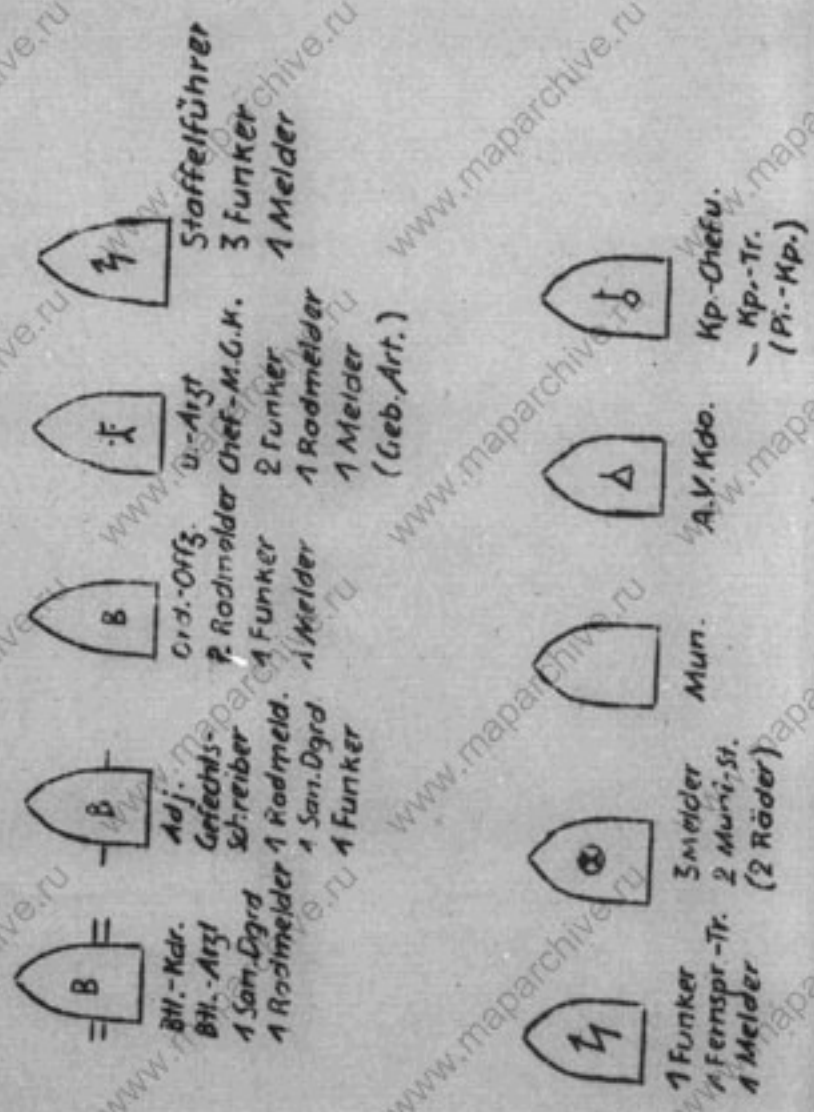 B
Btl.-Kdr.
Btl.-Arzt
1 San.Dgrd
1 Radmelder
B
Adj.
Gefechts-
schreiber
1 Radmeld.
1 San.Dgrd
1 Funker
B
Ord.-Offz.
P. Radmelder
1 Funker
1 Melder
U.-Arzt
Chef-M.G.K.
2 Funker
1 Radmelder
1 Melder
(Geb.Art.)
Staffelführer
3 Funker
1 Melder
1 Funker
1 Fernspr.-Tr.
1 Melder
3 Melder
2 Muni.-St.
(2 Räder)
Mun.
A.V.Kdo.
Kp.-Chef u.
Kp.-Tr.
(Pi.-Kp.)
www.maparchive.ru